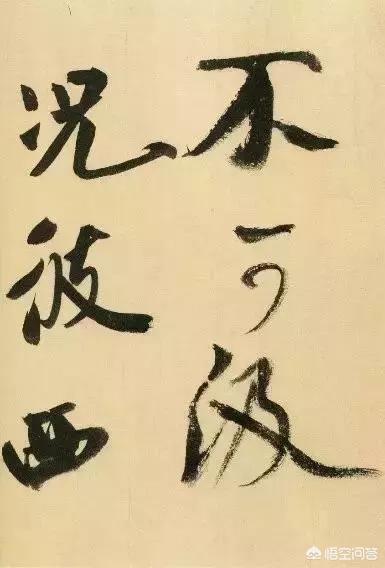 不可汲
况彼西
悟空问答